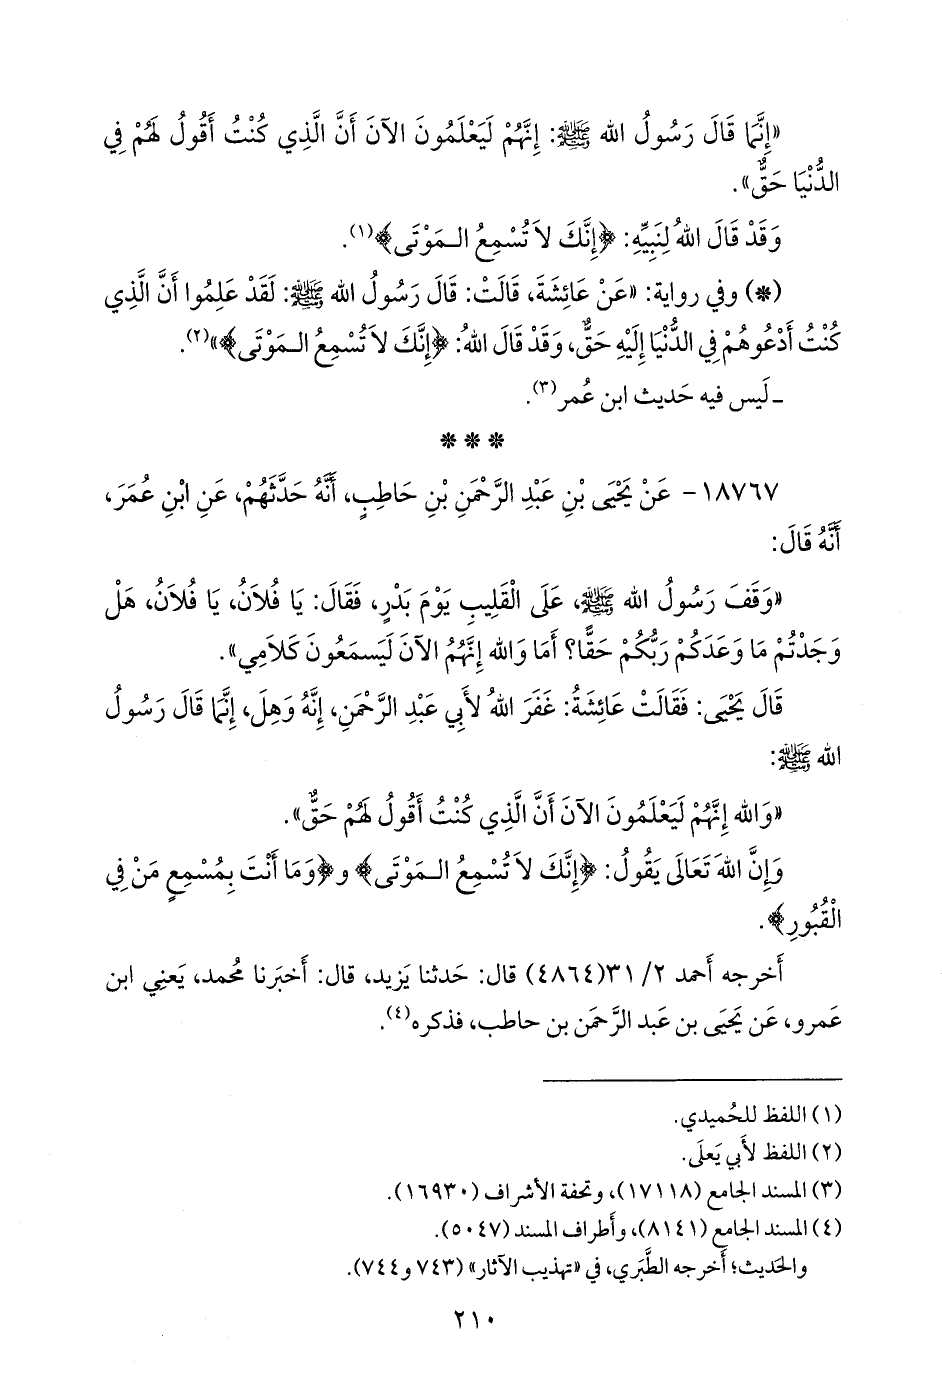 «إِنَّمَا قَالَ رَسُولُ الله ﷺ: إِنَّهُمْ لَيَعْلَمُونَ الآنَ أَنَّ الَّذِي كُنْتُ أَقُولُ لَهُمْ فِي
الدُّنْيَا حَقٌّ».
وَقَدْ قَالَ اللهُ لِنَبِيِّهِ: ﴿إِنَّكَ لاَ تُسْمِعُ الـمَوْتَى﴾(١).
(*) وفي رواية: «عَنْ عَائِشَةَ، قَالَتْ: قَالَ رَسُولُ الله ﷺ: لَقَدْ عَلِمُوا أَنَّ الَّذِي
كُنْتُ أَدْعُوهُمْ فِي الدُّنْيَا إِلَيْهِ حَقٌّ، وَقَدْ قَالَ اللهُ: ﴿إِنَّكَ لاَ تُسْمِعُ الـمَوْتَى﴾»(٢).
ـ لَيس فيه حَديث ابن عُمر(٣).
* * *
١٨٧٦٧- عَنْ يَحْيَى بْنِ عَبْدِ الرَّحْمَنِ بْنِ حَاطِبٍ، أَنَّهُ حَدَّثَهُمْ، عَنِ ابْنِ عُمَرَ،
أَنَّهُ قَالَ:
«وَقَفَ رَسُولُ الله ﷺ، عَلَى الْقَلِيبِ يَوْمَ بَدْرٍ، فَقَالَ: يَا فُلاَنُ، يَا فُلاَنُ، هَلْ
وَجَدْتُمْ مَا وَعَدَكُمْ رَبُّكُمْ حَقًّا؟ أَمَا وَالله إِنَّهُمُ الآنَ لَيَسمَعُونَ كَلاَمِي».
قَالَ يَحْيَى: فَقَالَتْ عَائِشَةُ: غَفَرَ اللهُ لأَبِي عَبْدِ الرَّحْمَنِ، إِنَّهُ وَهِلَ، إِنَّمَا قَالَ رَسُولُ
الله ﷺ:
«وَالله إِنَّهُمْ لَيَعْلَمُونَ الآنَ أَنَّ الَّذِي كُنْتُ أَقُولُ لَهُمْ حَقٌّ».
وَإِنَّ اللهَ تَعَالَى يَقُولُ: ﴿إِنَّكَ لاَ تُسْمِعُ الـمَوْتَى﴾ و﴿وَمَا أَنْتَ بِمُسْمِعٍ مَنْ فِي
الْقُبُورِ﴾.
أَخرجه أَحمد ٢/ ٣١(٤٨٦٤) قال: حَدثنا يَزيد، قال: أَخبَرنا مُحمد، يَعنِي ابن
عَمرو، عَن يَحيَى بن عَبد الرَّحمَن بن حاطب، فذكره(٤).
(١) اللفظ للحُميدي.
(٢) اللفظ لأَبي يَعلَى.
(٣) المسند الجامع (١٧١١٨)، وتحفة الأشراف (١٦٩٣٠).
(٤) المسند الجامع (٨١٤١)، وأَطراف المسند (٥٠٤٧).
والحَديث؛ أَخرجه الطَّبَري، في «تهذيب الآثار» (٧٤٣ و٧٤٤).
٢١٠